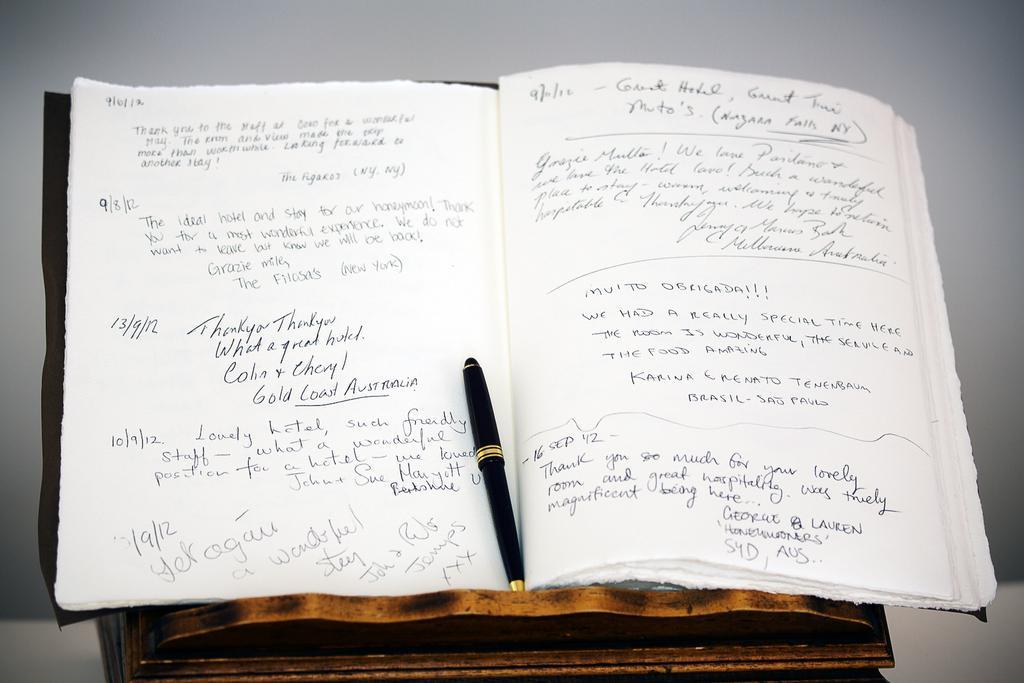 9/6/12
Thank you to the staff at Covo for a wonderful
stay. The room and view made the trip
more than worthwhile. Looking forward to
another stay!
The Figaros (NY, NY)
9/8/12
The ideal hotel and stay for our honeymoon! Thank
you for a most wonderful experience. We do not
want to leave but know we will be back!
Grazie mille,
The Filosa's (New York)
13/9/12
Thankyou Thankyou
What a great hotel.
Colin & Cheryl
Gold Coast AUSTRALIA
10/9/12. Lovely hotel, such friendly
staff - what a wonderful
position for a hotel - we loved
John + Sue Marriott
Berkshire U
/9/12
Yet again
a wonderful
stay
John &
xxx
- Great Hotel, Great
(NIAGARA FALLS NY)
Grazie Multo! We love Positano &
we love the Hotel Covo! Such a wonderful
place to stay - warm, welcoming & truly
hospitable. Thankyou. We hope to return
Jenny & Marcus
Melbourne Australia.
MUITO OBRIGADA!!!
WE HAD A REALLY SPECIAL TIME HERE
THE ROOM IS WONDERFUL, THE SERVICE AND
THE FOOD AMAZING
KARINA E RENATO TENENBAUM
BRASIL - SAO PAULO
- 16 SEP '12 -
Thank you so much for your lovely
room and great hospitality. Was truely
magnificent being here...
GEORGE & LAUREN
'HONEYMOONERS'
SYD, AUS..